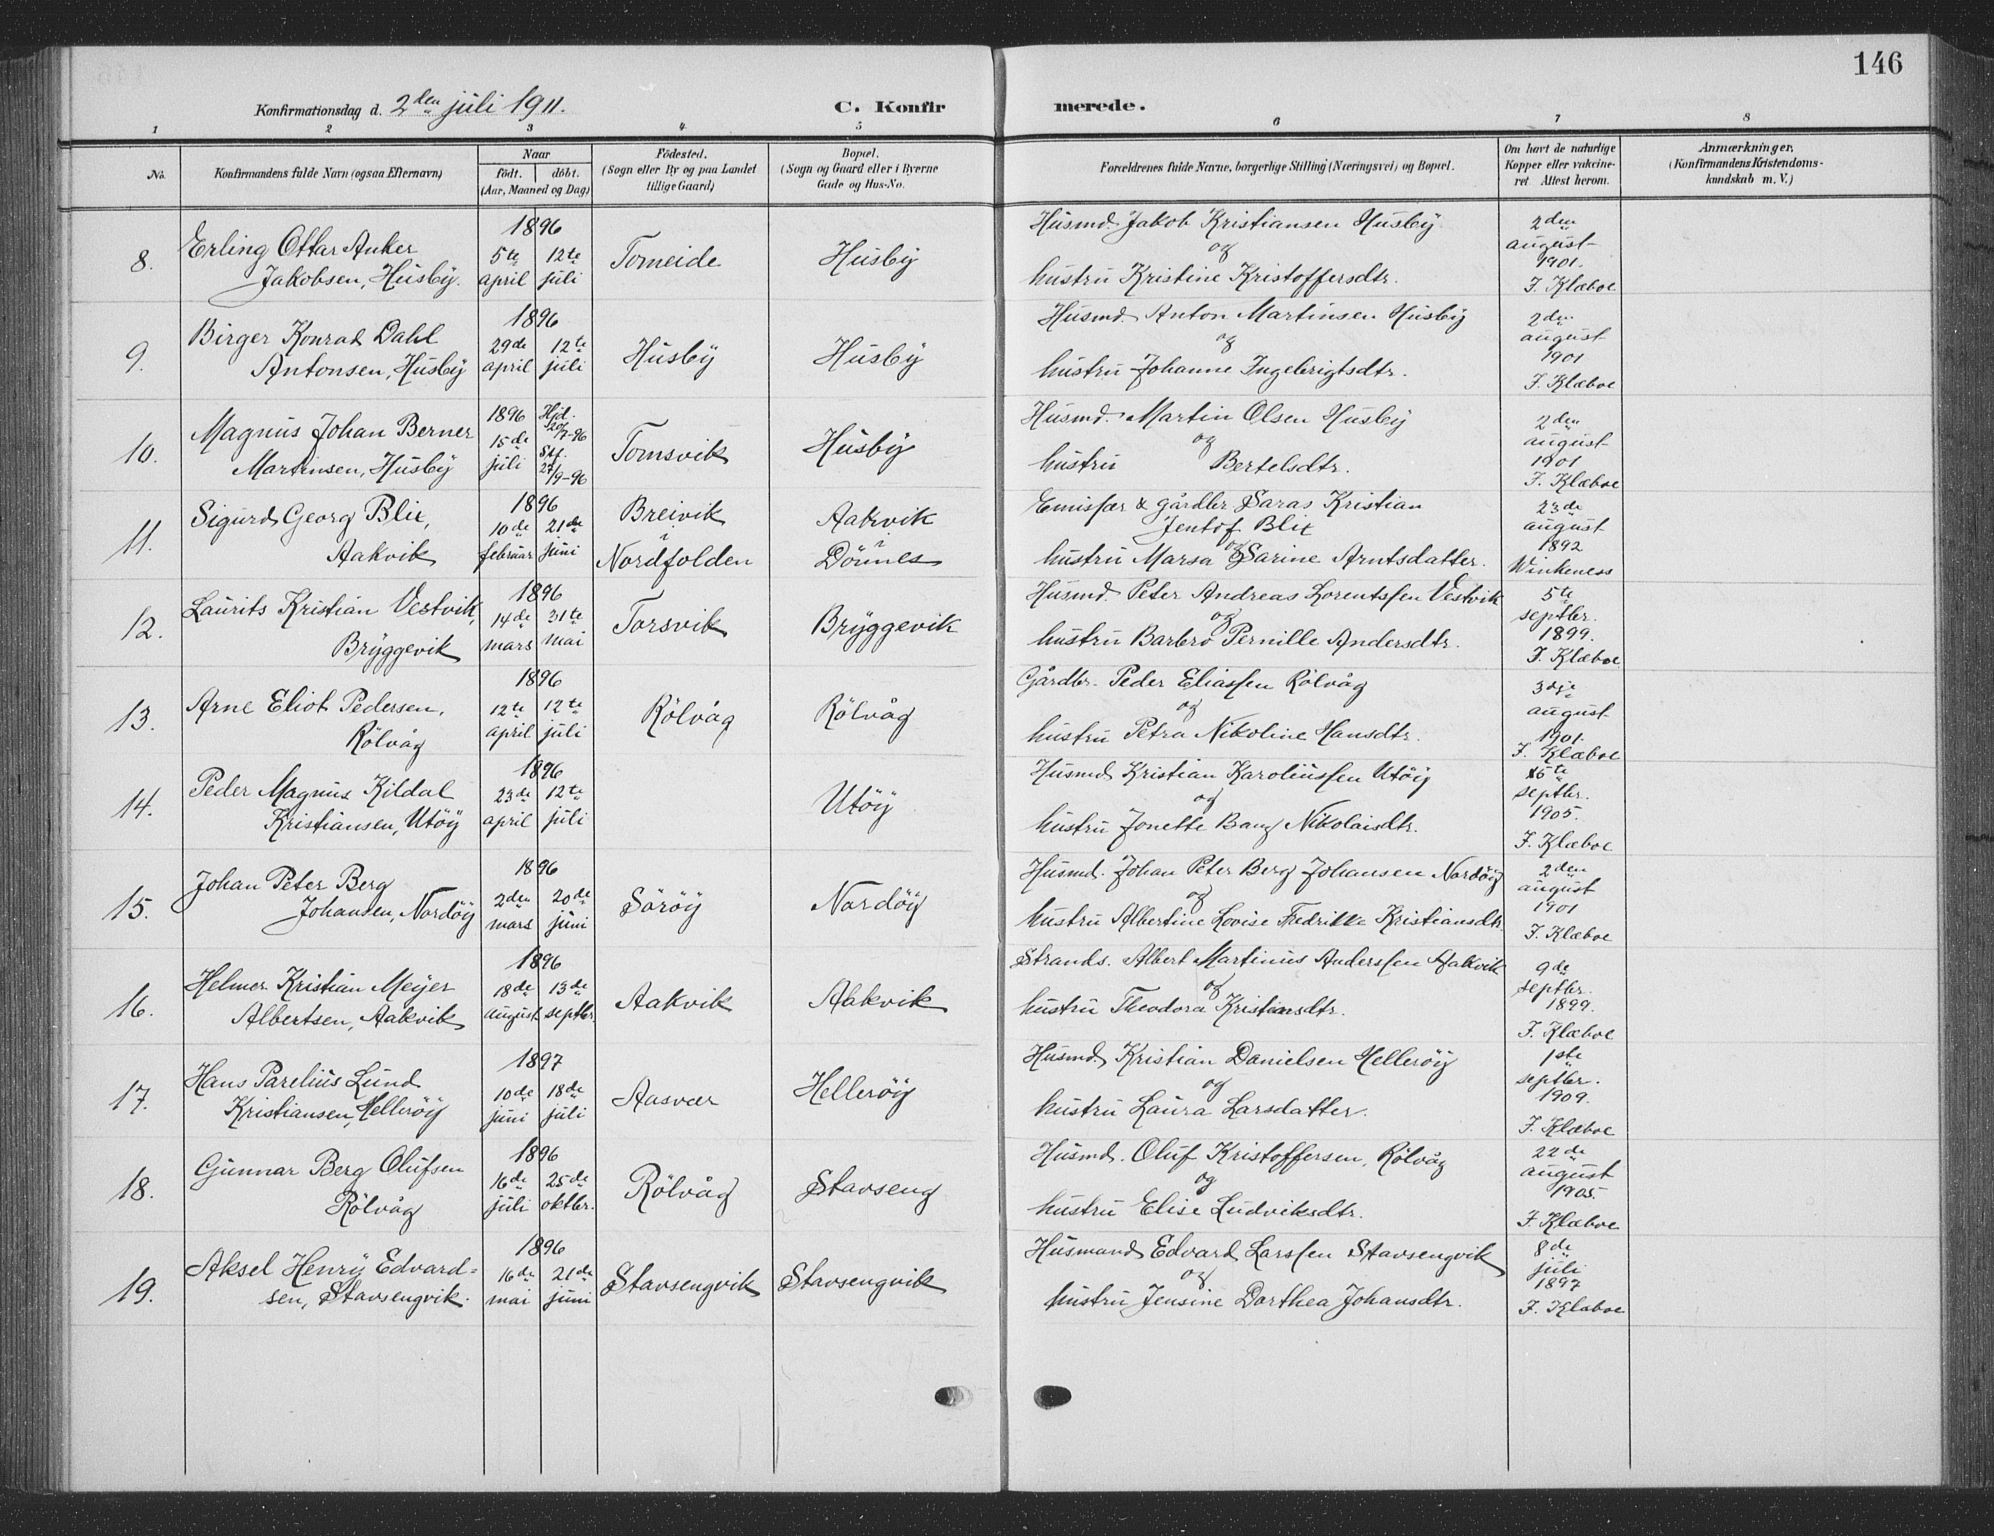 146
Konfirmationsdag d. 2den juli 1911.
C. Konfirmerede.
1 2 3 4 5 6 7 8
No.
Konfirmandens fulde Navn (ogsaa Efternavn)
Naar
født. døbt.
(Aar, Maaned og Dag)
Födested.
(Sogn eller By og paa Landet
tillige Gaard)
Bopæl.
(Sogn og Gaard eller i Byerne
Gade og Hus-No.
Forældrenes fulde Navne, borgerlige Stilling (Næringsvei) og Bopæl.
Om havt de naturlige
Kopper eller vakcine-
ret Attest herom.
Anmærkninger,
(Konfirmandens Kristendoms-
kundskab m. V.)
8. Erling Ottar Anker
Jakobsen, Husby.
1896
5te april 12te juli
Tomeide
Husby
Husmd. Jakob Kristiansen Husby
og
hustru Kristine Kristoffersdtr.
2den
august
1901.
F. Klæboe
9. Birger Konrad Dahl
Antonsen, Husby
1896
29de april 12te juli
Husby
Husby
Husmd. Anton Martinsen Husby
og
hustru Johanne Ingebrigtsdtr.
2den
august
1901
F. Klæboe
10. Magnus Johan Berner
Martinsen, Husby
1896
15de juli
Hjd.
20/7-96
Stf.
27/9-96
Tomsvik
Husby
Husmd. Martin Olsen Husby
og
hustru Bertelsdtr.
2den
august
1901
F. Klæboe
11. Sigurd Georg Blix,
Aakvik
1896
10de februar 21de juni
Breivik
i
Nordfolden
Aakvik
i
Dönnes
Emisær & gårdbr Saras Kristian
Jentof Blix
og
hustru Marsa Sarine Arntsdatter.
23de
august
1892
Winkeness
12. Laurits Kristian Vestvik,
Bryggevik
1896
14de mars 31te mai
Torsvik
Bryggevik
Husmd Peter Andreas Lorentsen Vestvik
og
hustru Barbro Pernille Andersdtr.
5te
septbr.
1899.
F. Klæboe
13. Arne Eliot Pedersen,
Rölvåg
1896
12te april 12te juli
Rölvåg
Rölvåg
Gårdbr. Peder Eliassen Rölvåg
og
hustru Petra Nikoline Hansdtr.
3dje
august
1901.
F. Klæboe
14. Peder Magnus Kildal
Kristiansen, Utöy
1896
23de april 12te juli
Utöy
Husmd Kristian Karoliussen Utöy
og
hustru Jonette Bang Nikolaisdtr.
16te
septbr.
1905.
F. Klæboe
15. Johan Peter Berg
Johansen, Nordöy
1896
2den mars 20de juni
Söröy
Nordöy
Husmd. Johan Peter Berg Johansen Nordöy
og
hustru Albertine Lovise Fredrikke Kristiansdtr
2den
august
1901
F. Klæboe
16. Helmer Kristian Meyer
Albertsen, Aakvik
1896
18de august 13de septbr.
Aakvik
Aakvik
Strands. Albert Martinus Anderssen Aakvik
og
hustru Theodora Kristiansdtr.
9de
septbr.
1899.
F. Klæboe
17. Hans Parelius Lund
Kristiansen, Helleröy
1897
10de juni 18de juli
Aasvær
Helleröy
Husmd. Kristian Danielsen Helleröy
og
hustru Laura Larsdatter.
1ste
septbr.
1909.
F. Klæboe
18. Gunnar Berg Olufsen
Rölvåg
1896
16de juli 25de oktbr.
Rölvåg
Stavseng
Husmd. Oluf Kristoffersen, Rölvåg
og
hustru Elise Ludviksdtr.
22de
august
1905
F. Klæboe
19. Aksel Henry Edvard=
sen, Stavsengvik.
1896
16de mai 21de juni
Stavsengvik
Stavsengvik
Husmand Edvard Larssen Stavsengvik
og
hustru Jensine Dorthea Johansdtr.
8de
juli
1897
F. Klæboe